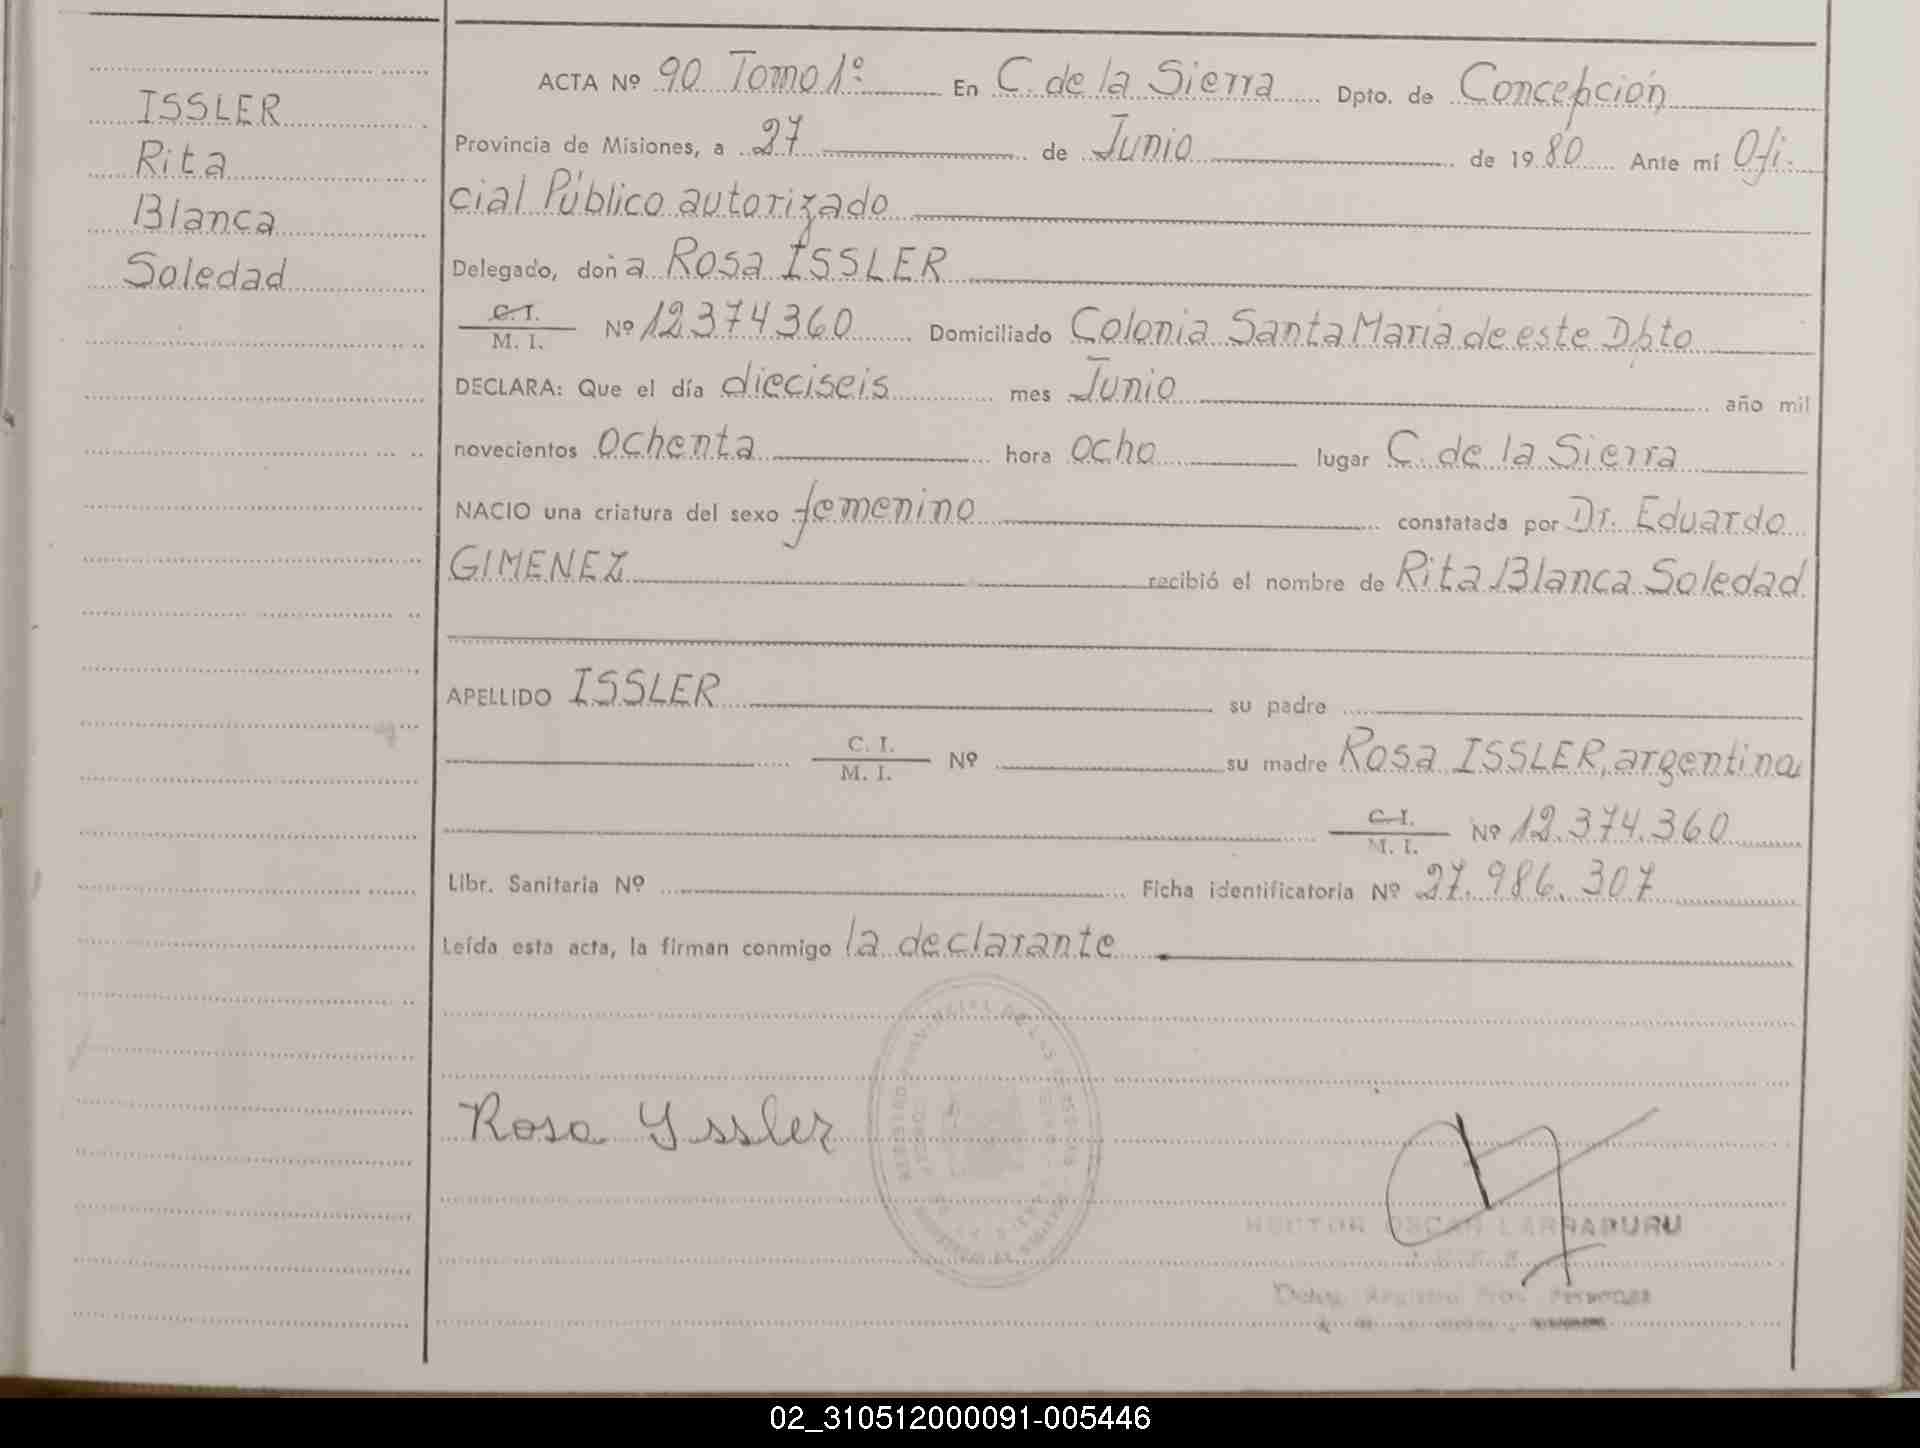 ISSLER
Rita
Blanca
Soledad
ACTA Nº 90 Tomo 1º En C. de la Sierra Dpto. de Concepción
Provincia de Misiones, a 27 de Junio de 1980 Ante mí Ofi-
cial Público autorizado
Delegado, doña Rosa ISSLER
C. I.
M. I. Nº 12.374.360 Domiciliado Colonia Santa Maria de este Dpto
DECLARA: Que el día dieciseis mes Junio año mil
novecientos ochenta hora ocho lugar C. de la Sierra
NACIO una criatura del sexo femenino constatada por Dr. Eduardo
GIMENEZ recibió el nombre de Rita Blanca Soledad
APELLIDO ISSLER su padre
C. I.
M. I. Nº su madre Rosa ISSLER, argentina
C. I.
M. I. Nº 12.374.360
Libr. Sanitaria Nº Ficha identificatoria Nº 27.986.307
Leída esta acta, la firman conmigo la declarante
Rosa Yssler
HECTOR OSCAR LARRABURU
02_310512000091-005446